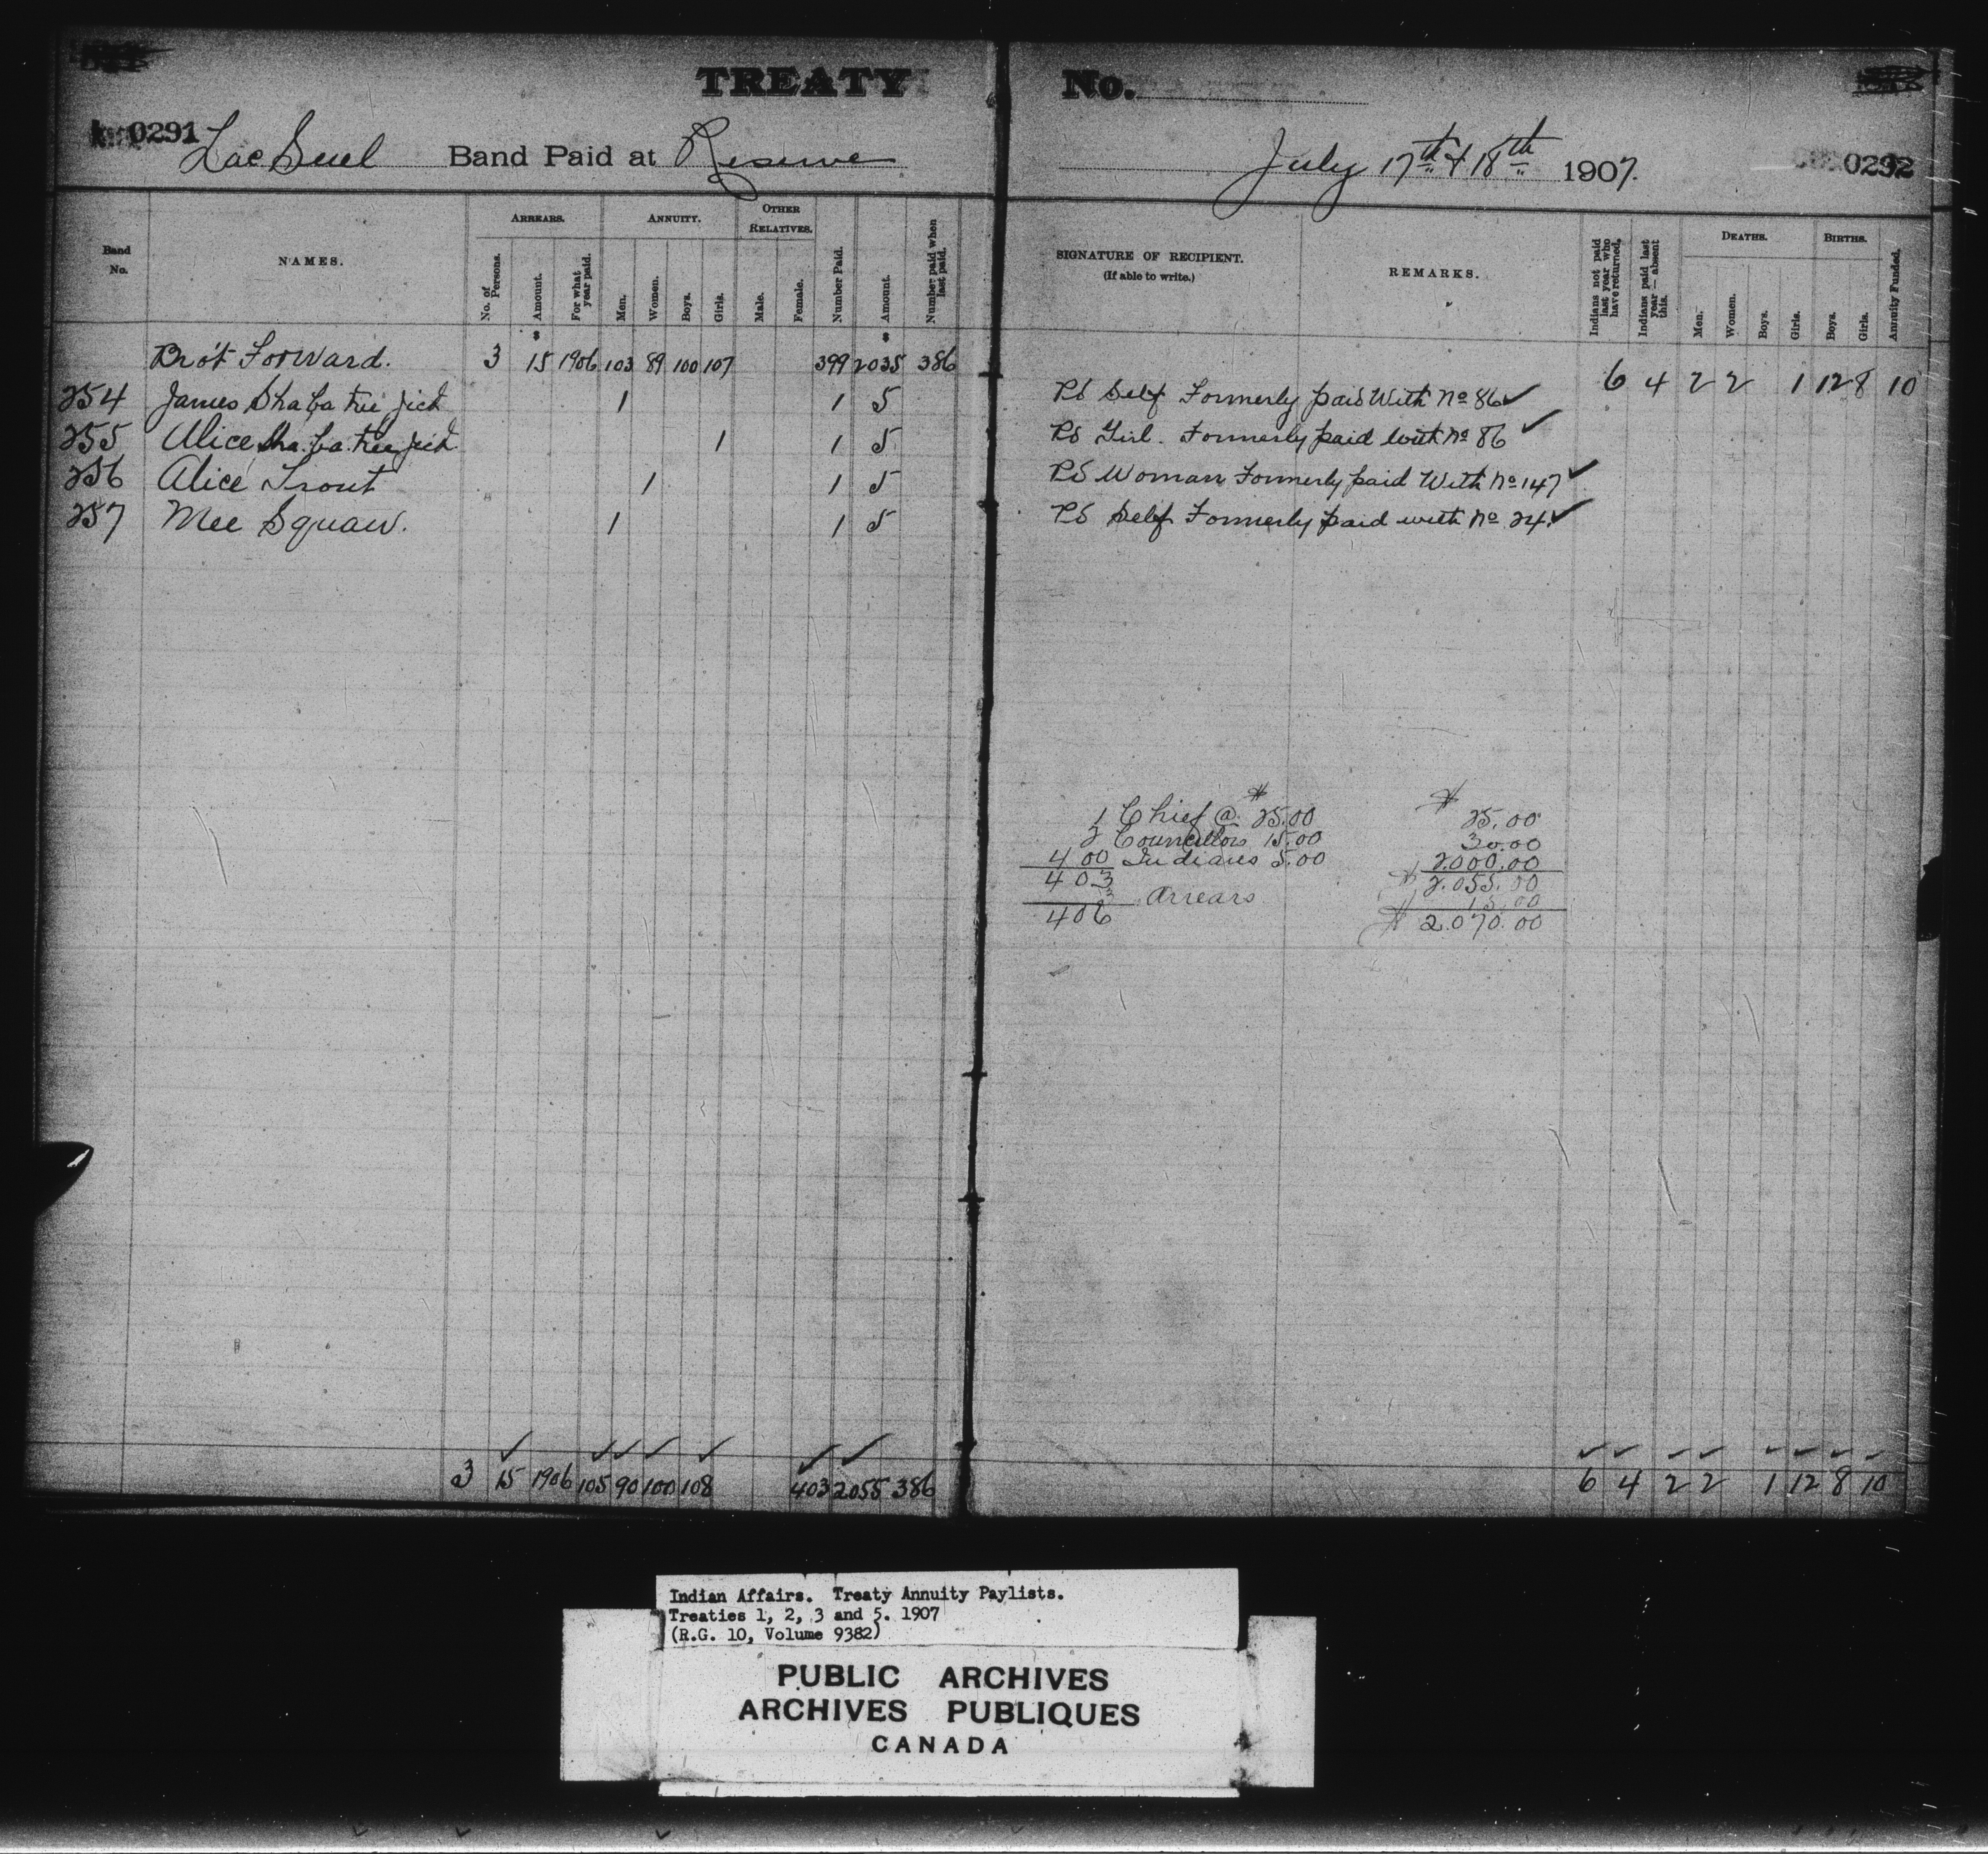 TREATY No.
0291 Lac Seul Band Paid at Reserve July 17th & 18th 1907. 0292
Band No.
NAMES.
ARREARS.
No. of Persons.
Amount.
For what year paid.
ANNUITY.
Men.
Women.
Boys.
Girls.
OTHER RELATIVES.
Male.
Female.
Number Paid.
Amount.
Number paid when last paid.
SIGNATURE OF RECIPIENT.
(If able to write.)
REMARKS.
Indians not paid last year who have returned.
Indians paid last year — absent this.
DEATHS.
Men.
Women.
Boys.
Girls.
BIRTHS.
Boys.
Girls.
Annuity Funded.
Bro't Forward. 3 $15 1906 103 89 100 107 399 $2035 386 6 4 2 2 1 12 8 10
254 James Sha ba kee jick 1 1 5 PS Self Formerly paid With No 86 ✓
255 Alice Sha. ba. kee jick 1 1 5 PS Girl. Formerly paid with No 86 ✓
256 Alice Trout 1 1 5 PS Woman Formerly paid With No 147 ✓
257 Mee Squaw. 1 1 5 PS Self Formerly paid with No 24 ✓
1 Chief @ $25.00 $25.00
2 Councillors 15.00 30.00
400 Indians 5.00 2.000.00
403 $2.055.00
3 Arrears 15.00
406 $2.070.00
3 15 1906 105 90 100 108 403 2055 386 6 4 2 2 1 12 8 10
Indian Affairs. Treaty Annuity Paylists.
Treaties 1, 2, 3 and 5. 1907
(R.G. 10, Volume 9382)
PUBLIC ARCHIVES
ARCHIVES PUBLIQUES
CANADA